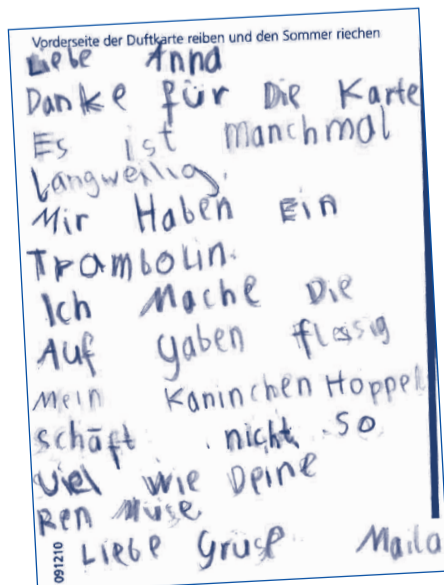 Vorderseite der Duftkarte reiben und den Sommer riechen
Liebe Anna
Danke für Die Karte
Es ist manchmal
Langweilig.
Mir Haben Ein
Trambolin.
Ich Mache Die
Auf gaben fleisig
Mein Kaninchen Hoppel
schäft nicht so
viel wie Deine
Ren Müse
Liebe Grüse Maila
091210